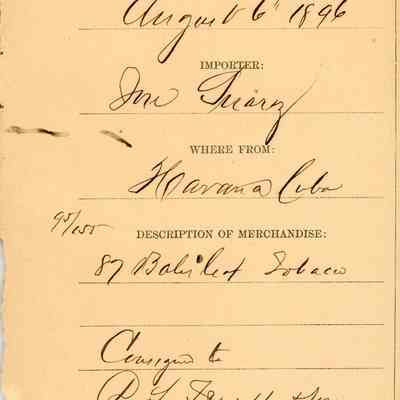 August 6" 1896
IMPORTER:
Jose Suarez
WHERE FROM:
Havana Cuba
95/155
DESCRIPTION OF MERCHANDISE:
87 Bales leaf Tobacco
Consigned to